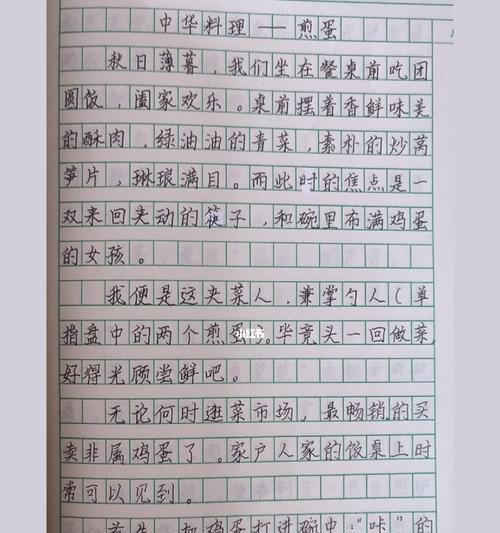 中华料理——煎蛋
秋日薄暮，我们坐在餐桌前吃团
圆饭，阖家欢乐。桌前摆着香鲜味美
的酥肉，绿油油的青菜，素朴的炒莴
笋片，琳琅满目。而此时的焦点是一
双来回夹动的筷子，和碗里布满鸡蛋
的女孩。
我便是这夹菜人，兼掌勺人（单
指盘中的两个煎蛋）。毕竟头一回做菜，
好得光顾尝鲜吧。
无论何时逛菜市场，最畅销的买
卖非属鸡蛋了。家户人家的饭桌上时
常可以见到。
首先，把鸡蛋打进碗中，“咔”的
小红书